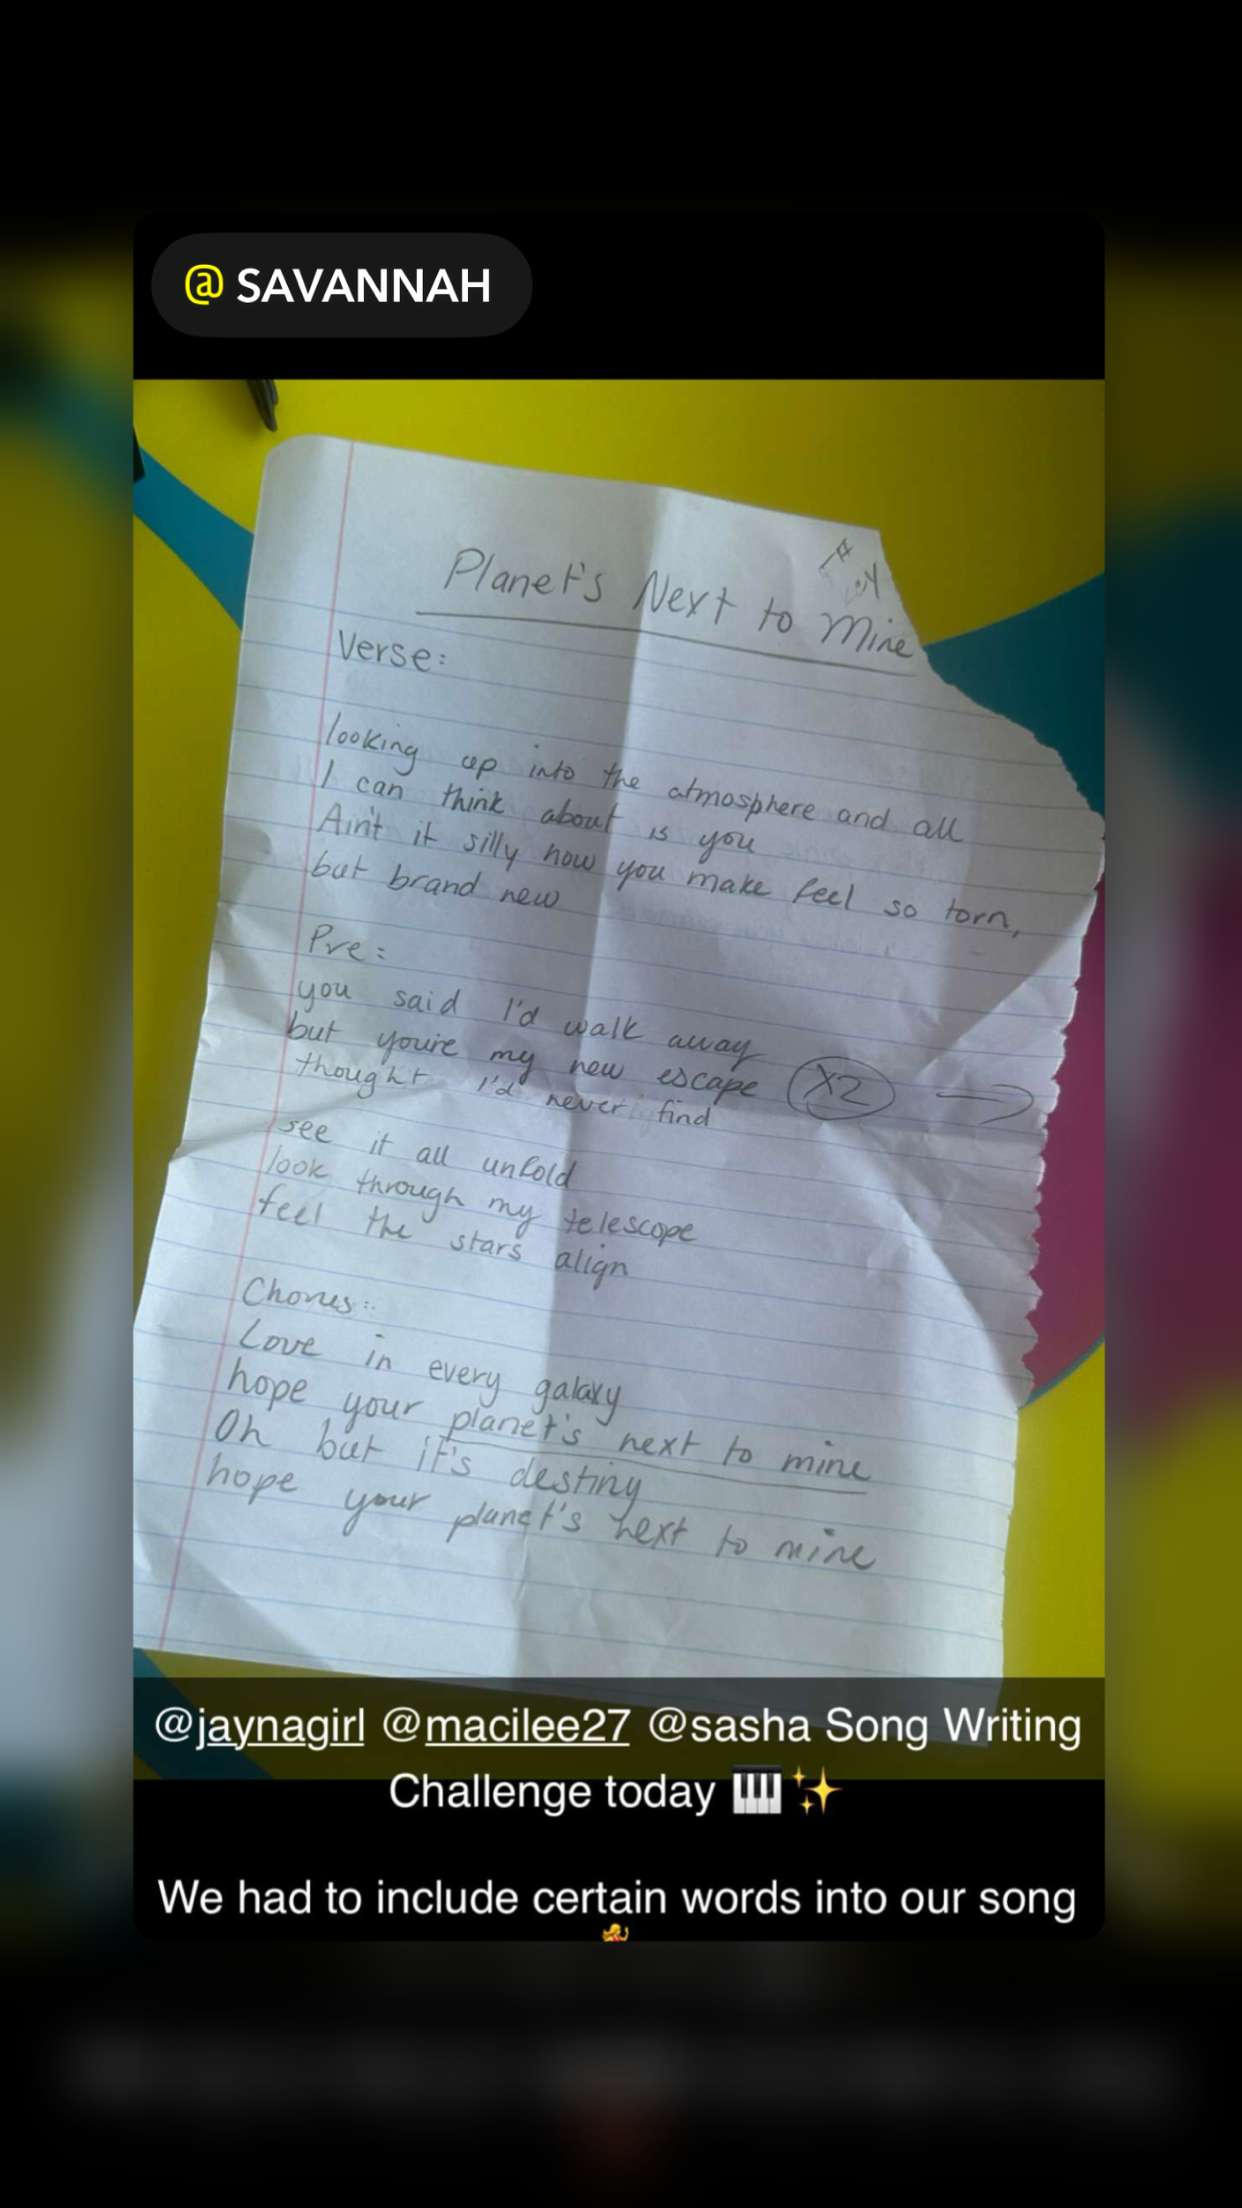 @ SAVANNAH
Planet's Next to Mine
Verse:
looking up into the atmosphere and all
I can think about is you
Ain't it silly how you make feel so torn,
but brand new
Pre:
you said I'd walk away
but you're my new escape X2
thought I'd never find
see it all unfold
look through my telescope
feel the stars align
Chorus:
Love in every galaxy
hope your planet's next to mine
Oh but it's destiny
hope your planet's next to mine
@jaynagirl @macilee27 @sasha Song Writing
Challenge today 🎹✨
We had to include certain words into our song